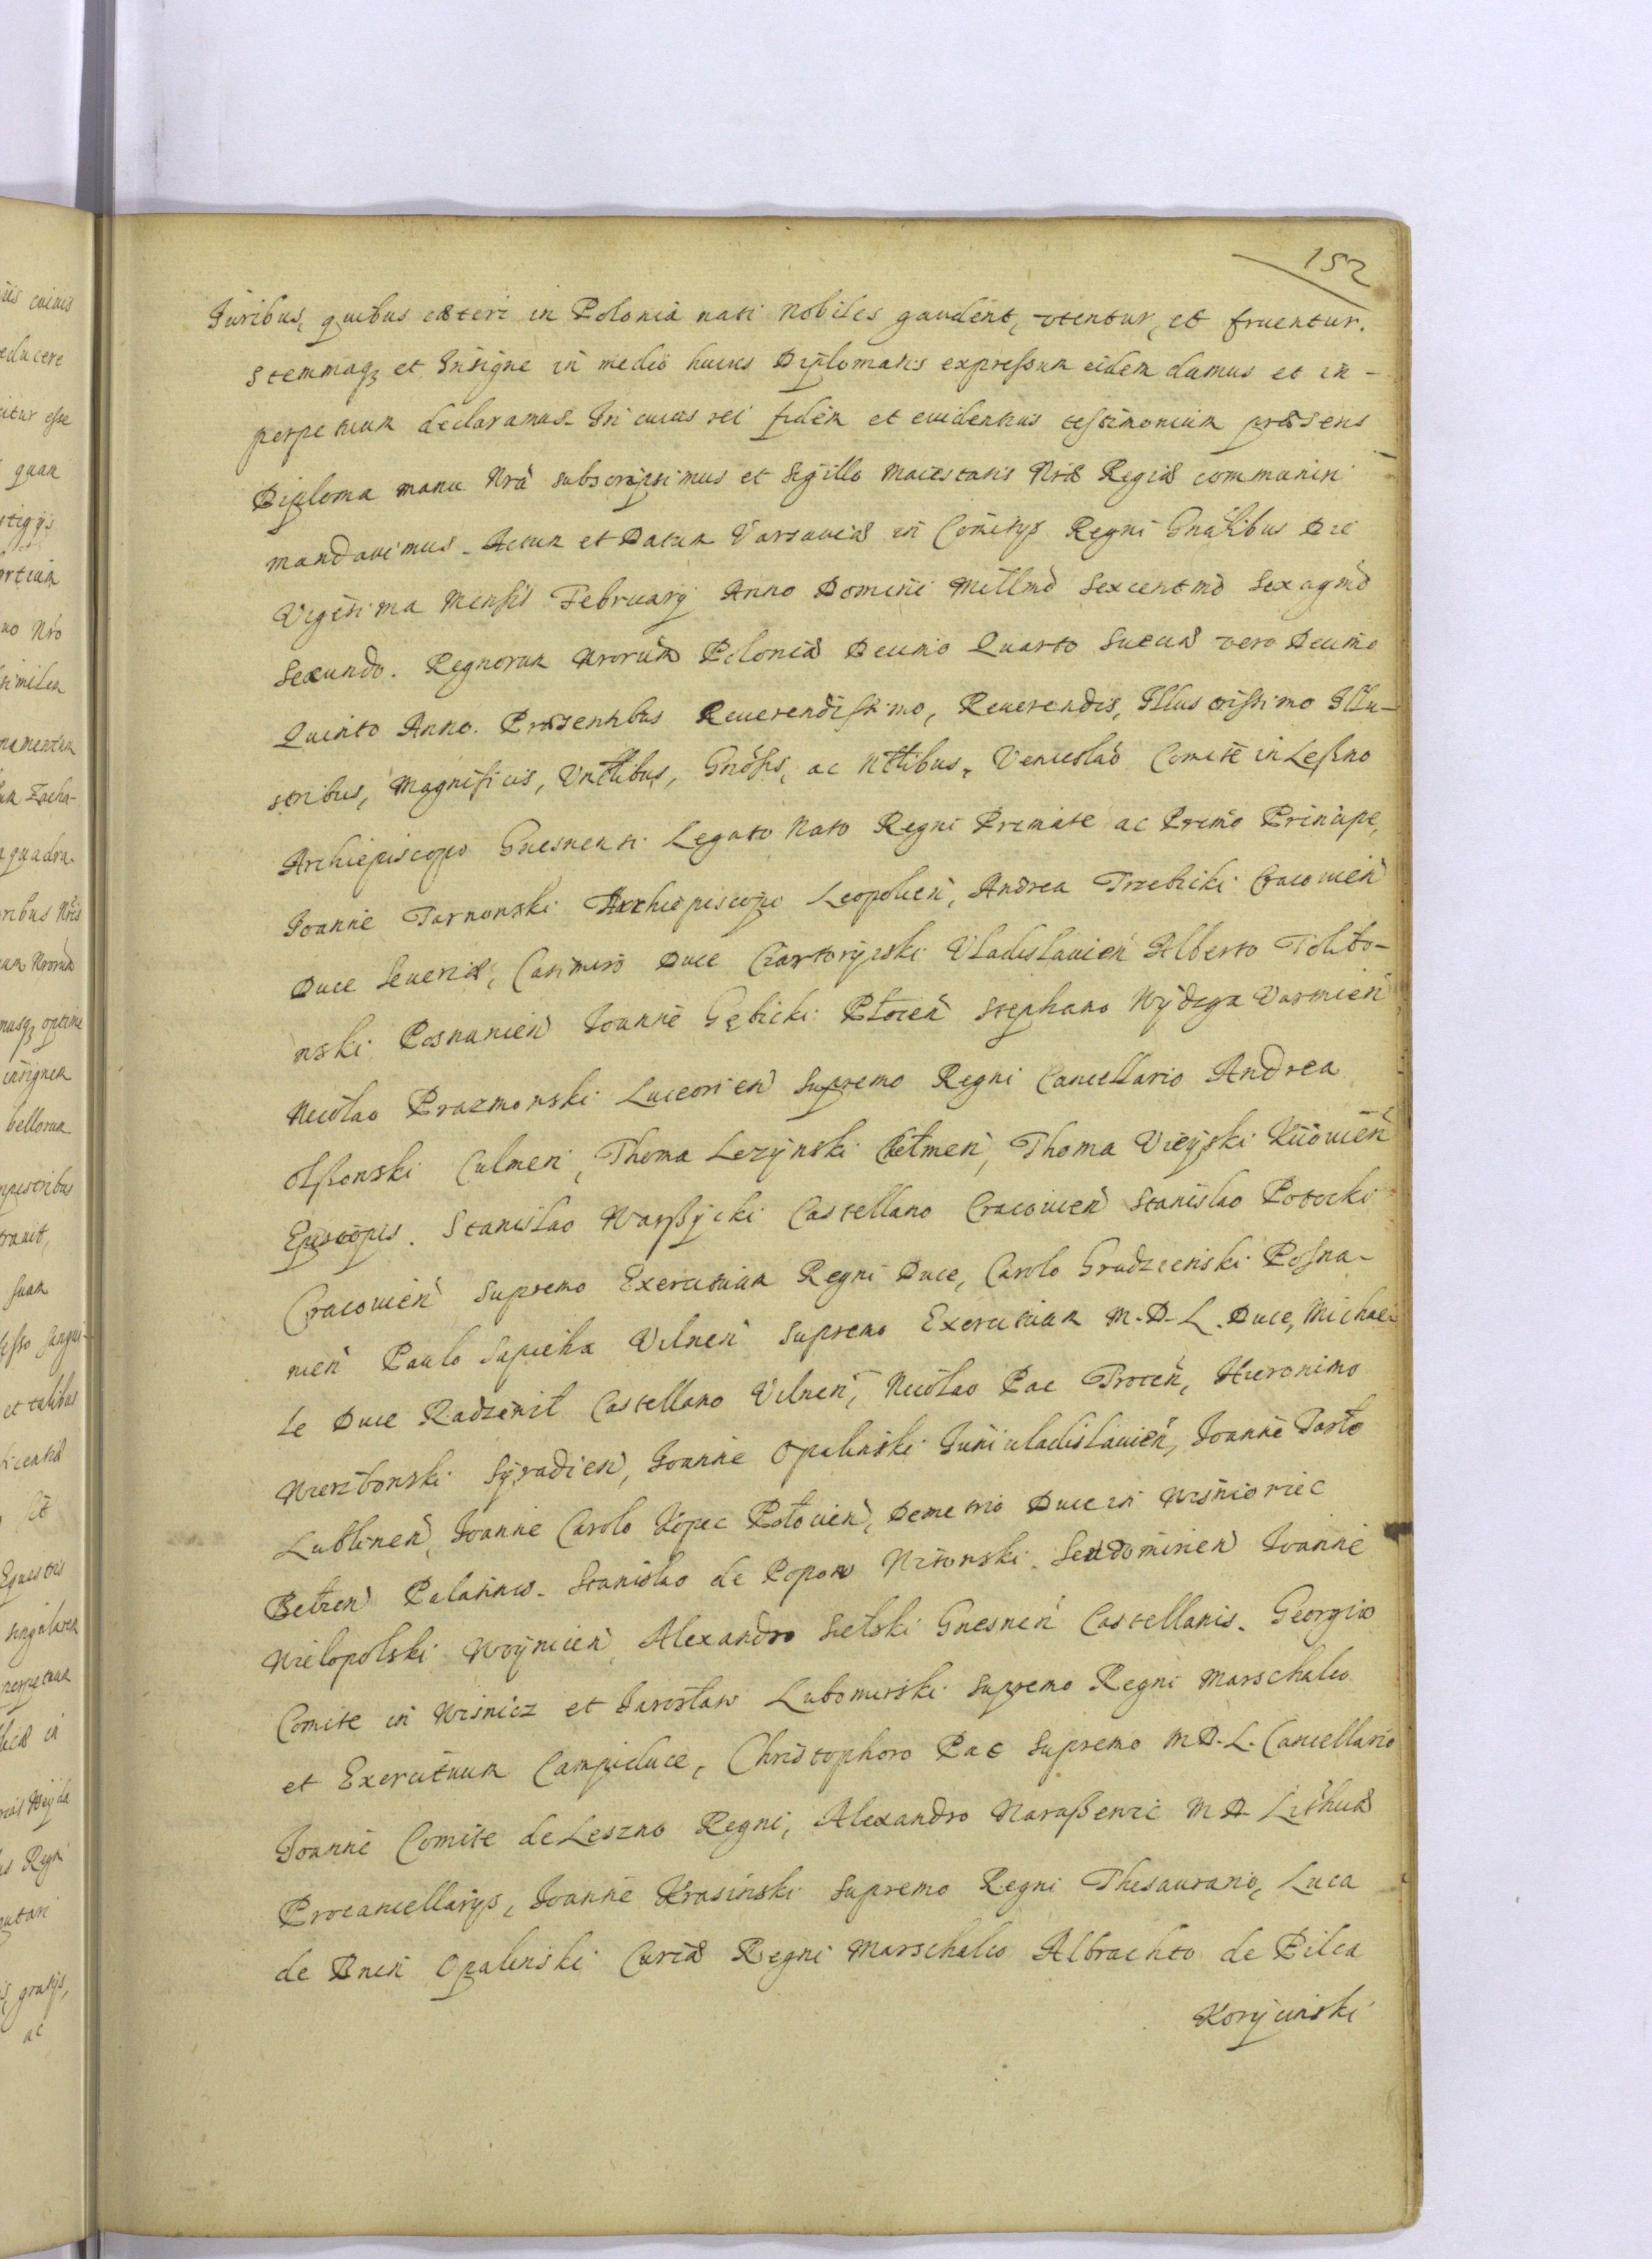 152
Juribus, quibus cæteri in Polonia nati Nobiles gaudent, vtentur, et fruentur.
Stemmaq3 et Insigne in medio huius Diplomatis expressum eidem damus et in-
perpetuum declaramus. In cuius rei fidem et euidentius testimonium præsens
Diploma manu Nrâ subscripsimus et Sigillo Maiestatis Nræ Regiæ communiri
mandauimus. Actum et Datum Varsauiæ in Comitÿs Regni Gnãlibus Die
Vigesima Mensis Februarÿ Anno Domini Millmo Sexcentmo Sexagmo
Secundo. Regnorum Nrorum Poloniæ Decimo Quarto Sueciæ vero Decimo
Quinto Anno. Præsentibus Reuerendissimo, Reuerendis, Illustrissimo Illu-
stribus, Magnificis, Vntlibus, Gnosis, ac Ntlibus. Venceslao Comite in Leßno
Archiepiscopo Gnesnensi Legato Nato Regni Primate ac Primo Principe,
Joanne Tarnowski Archiepiscopo Leopolien, Andrea Trzebicki Cracouien
Duce Seueriæ, Casimiro Duce Czartorÿiski Vladislauien Alberto Tolibo-
wski Posnanien Joanne Gębicki Płocen Stephano Wÿdzga Varmien
Nicolao Prazmowski Luceorien Supremo Regni Cancellario Andrea
Olßowski Culmen, Thoma Lezÿnski Chełmen, Thoma Vieÿski Kiiouien
Episcopis. Stanislao Warßÿcki Castellano Cracouien Stanislao Potocki
Cracouien Supremo Exercituum Regni Duce, Carolo Grudzienski Posna-
nien Paulo Sapieha Vilnen Supremo Exercituum M.D.L. Duce, Michae-
le Duce Radzewił Castellano Vilnen, Nicolao Pac Trocen, Hieronimo
Wierzbowski Sÿradien, Joanne Opalinski Juniuladislauien, Joanne Tarło
Lublinen, Joanne Carolo Kopec Połocien, Demetrio Duce in Wisniowiec
Bełzen Palatinis. Stanislao de Popow Witowski Sendomirien Joanne
Wielopolski Woÿnicien, Alexandro Sielski Gnesnen Castellanis. Georgio
Comite in Wisnicz et Jarosław Lubomirski Supremo Regni Marschalco
et Exercituum Campiduce, Christophoro Pac Supremo M.D.L. Cancellario
Joanne Comite de Leszno Regni, Alexandro Naraßewic M D Lithuæ
Procancellarÿs, Joanne Krasinski Supremo Regni Thesaurario, Luca
de Bnin Opalinski Curiæ Regni Marschalco Albrachto de Pilca
Korÿcinski